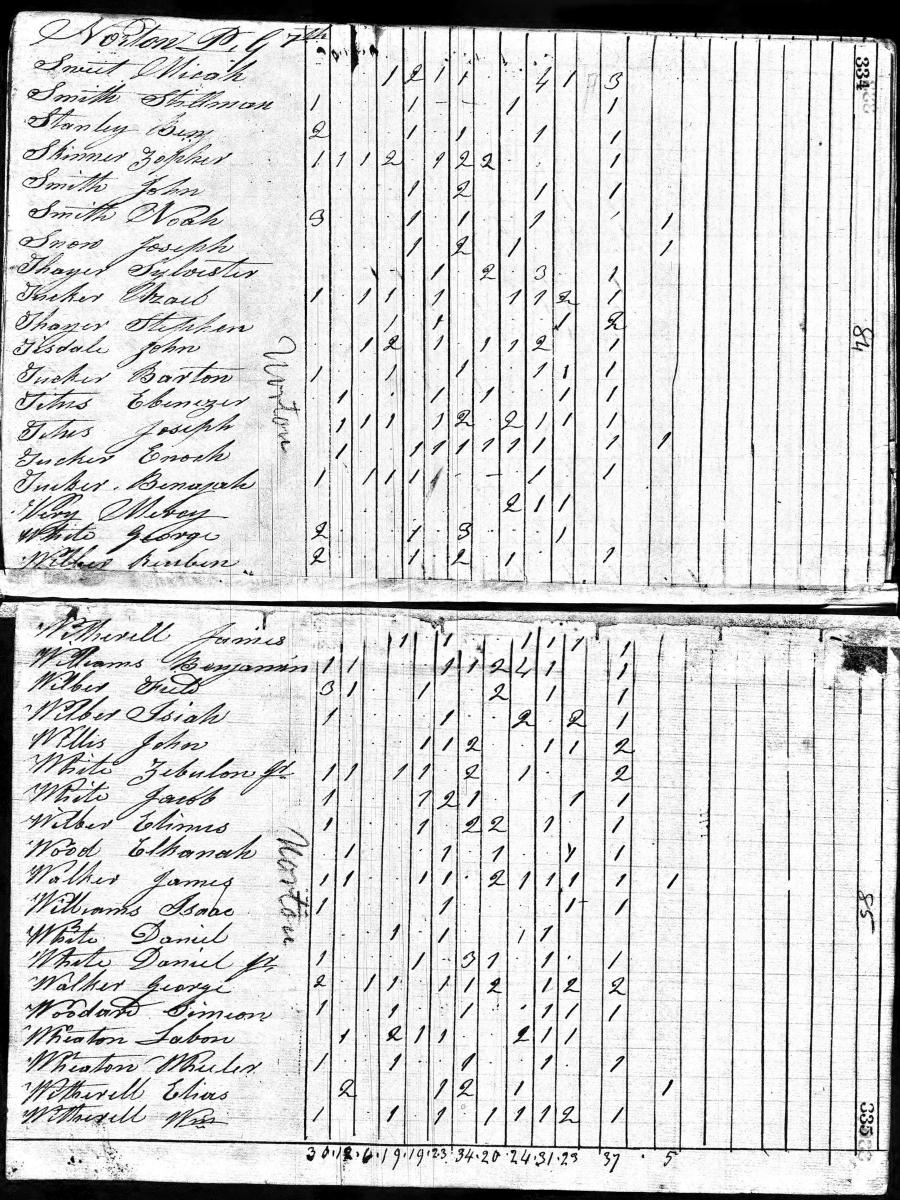 Norton P. G 7th
Sweet Micah 1 2 1 1 4 1 3
Smith Stillman 1 1 - - 1 1
Stanley Benj 2 1 1 1 1
Skinner Zopher 1 1 1 2 1 2 2 1
Smith John 1 2 1 1
Smith Noah 3 1 1 1 1
Snow Joseph 1 2 1 1
Thayer Sylvester 1 2 3 1
Tucker 1 1 1 1 1 1 2 1
Thayer Stephen 1 1 1 2
Tisdale John 1 2 1 1 1 2 1
Tucker Barton 1 1 1 1 1 1
Titus Ebenezer 1 1 1 1 1 1 1
Titus Joseph 1 1 1 1 2 2 1 1 1
Tucker Enoch 1 1 1 1 1 1 1 1 1
Tucker Benajah 1 1 1 1 1 - 1 1
Very Mercy 2 1 1
White George 2 1 3 1
Wilber Reuben 2 1 2 1 1
Norton
334
84
Witherell James 1 1 1 1 1 1
Williams Benjamin 1 1 1 1 2 4 1 1
Wilber 3 1 1 2 1 1
Wilber Isiah 1 1 2 2 1
Willis John 1 1 2 1 1 2
White Zebulon Jr 1 1 1 1 2 1 2
White Jacob 1 1 2 1 1 1
Wilber 1 1 2 2 1 1
Wood Elkanah 1 1 1 1 1
Walker James 1 1 1 1 2 1 1 1 1 1
Williams Isaac 1 1 1 1
White Daniel 1 1 1 1
White Daniel Jr 1 1 3 1 1 1
Walker George 2 1 1 1 1 2 1 2 2
Woodard Simeon 1 1 1 1 1 1
Wheaton Labon 1 2 1 1 2 1 1
Wheaton Wheeler 1 1 1 1 1
Witherell Elias 2 1 2 1 1
Witherell Wm 1 1 1 1 1 1 2 1
Norton
85
335
30. 12. 6. 19. 19. 23. 34. 20. 24. 31. 23 37 5